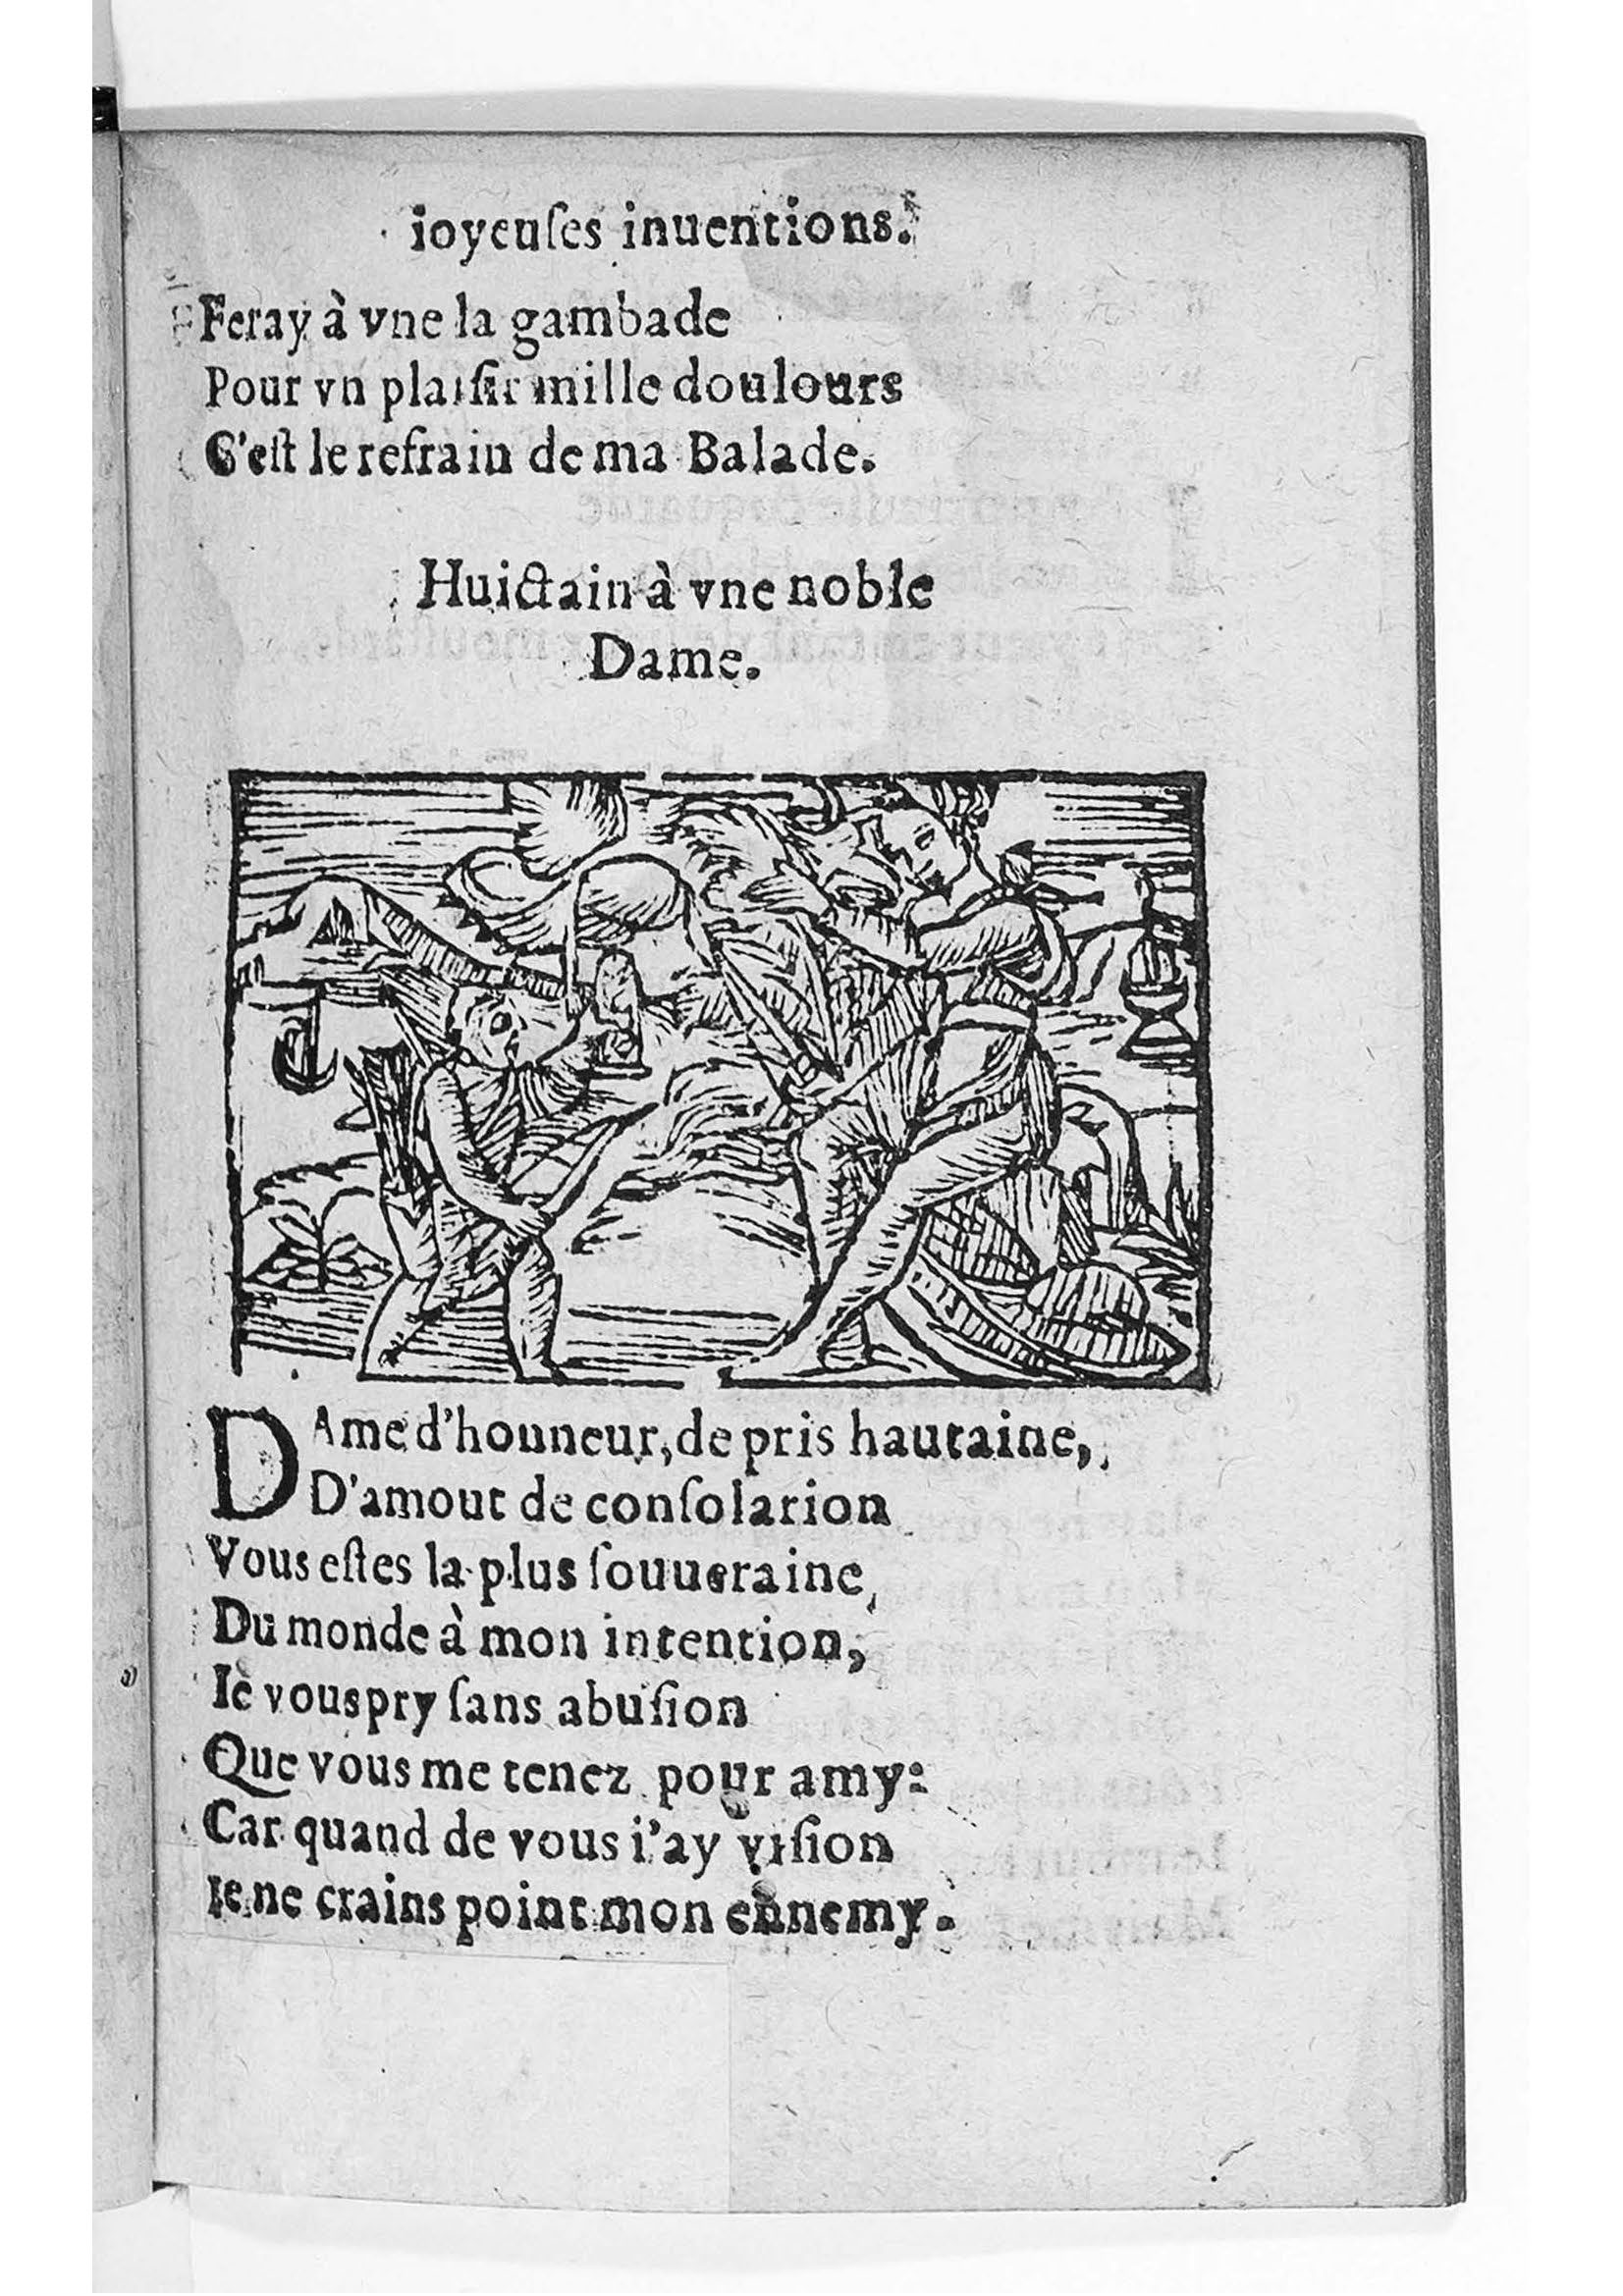 ioyeuſes inuentions.
Feray à vne la gambade
Pour vn plaiſir mille doulours
C'eſt le refrain de ma Balade.
Huictain à vne noble
Dame.
DAme d'honneur, de pris hautaine,
D'amout de conſolarion
Vous eſtes la plus ſouueraine,
Du monde à mon intention,
Ie vous pry ſans abuſion
Que vous me tenez pour amy:
Car quand de vous i'ay viſion
Ie ne crains point mon ennemy.